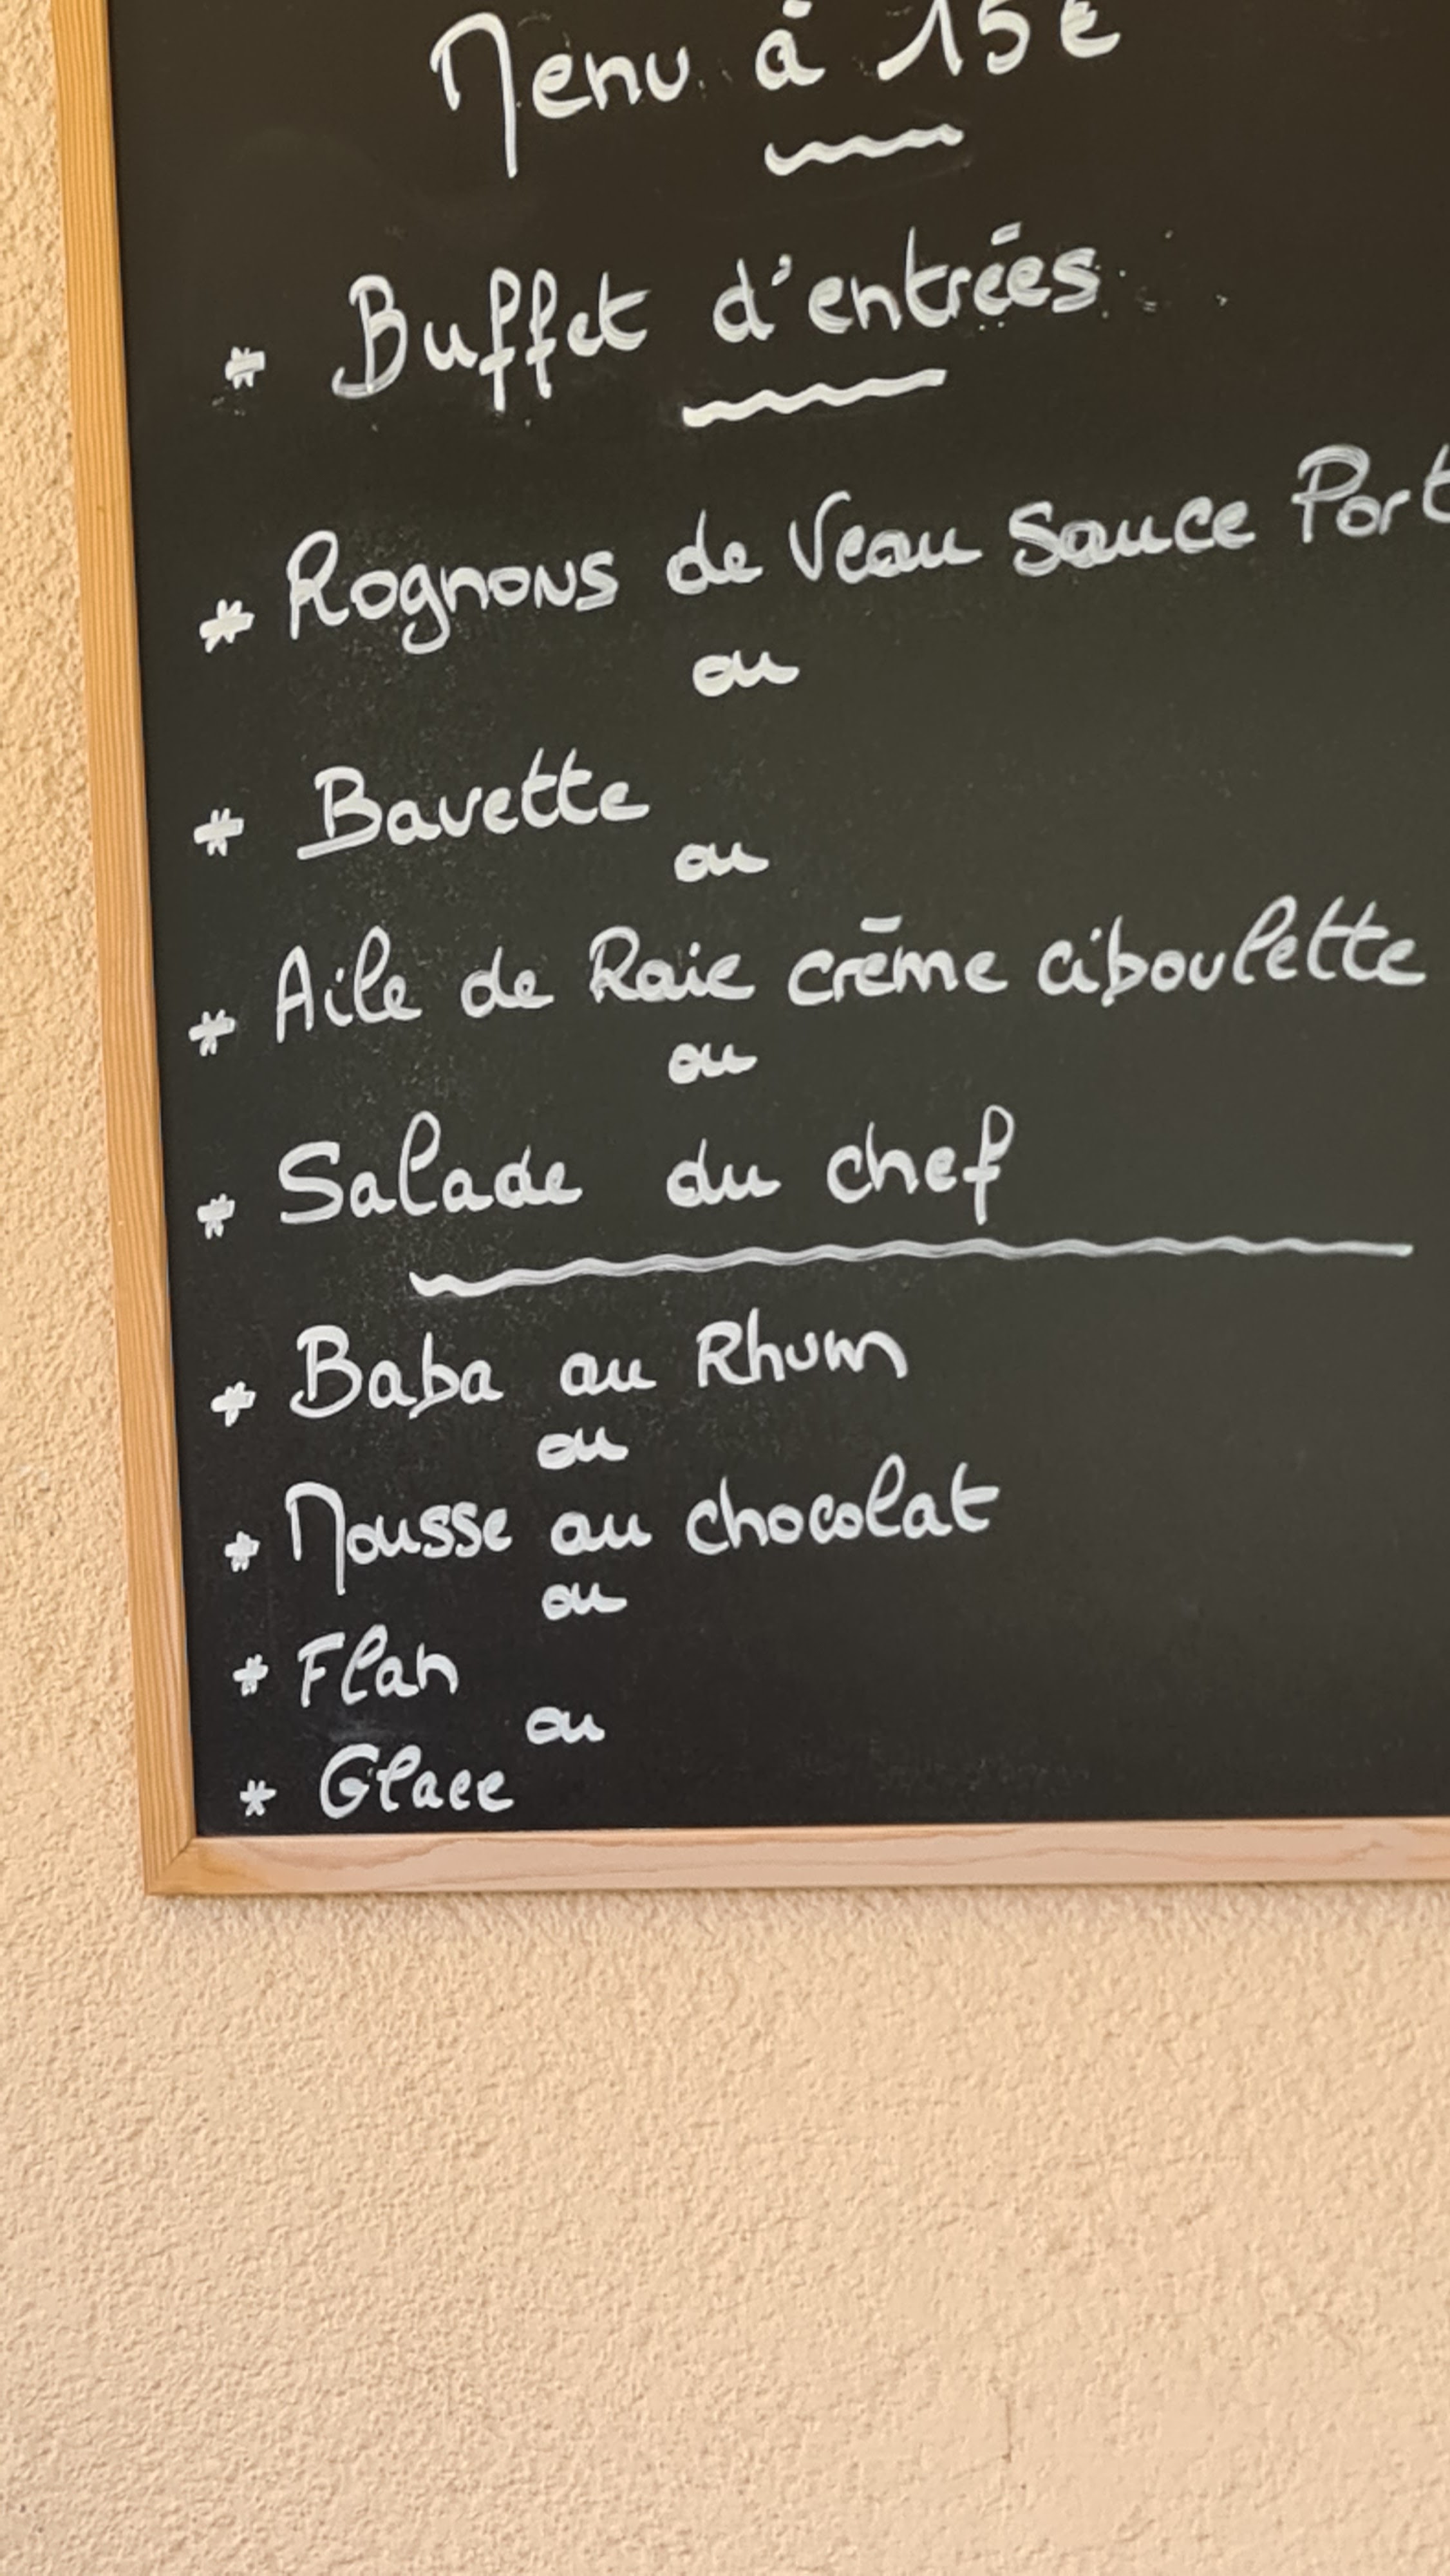 Menu à 15€
* Buffet d'entrées
* Rognons de Veau Sauce Port
ou
* Bavette
ou
* Aile de Raie crème ciboulette
ou
* Salade du chef
* Baba au Rhum
ou
* Mousse au chocolat
ou
* Flan
ou
* Glace